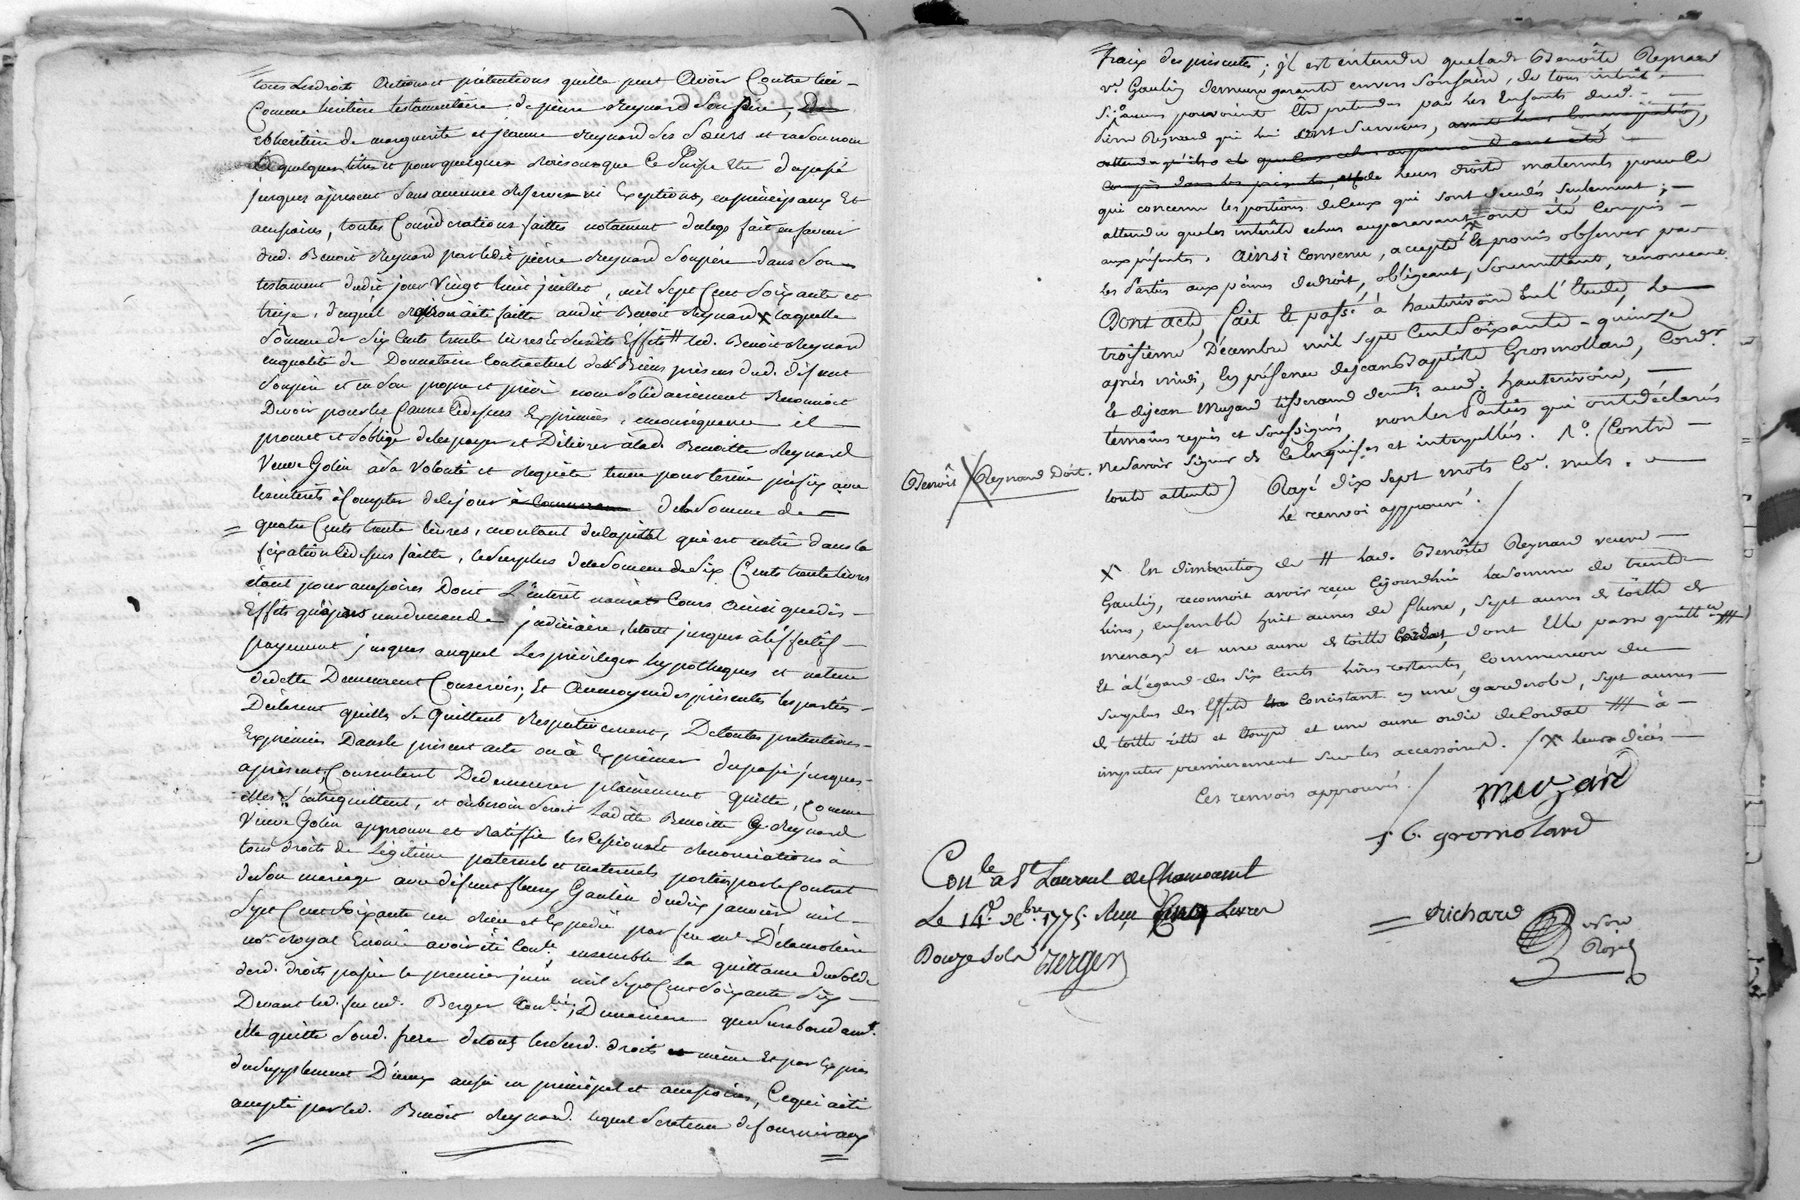 tous les droits actions et prétentions quelle peut avoir Contre lui
Comme héritier testamentaire de pierre Reynard son père,
cohéritier de marguerite et jeanne Reynard ses sœurs et
quelques titres et pour quelques raisons que ce puisse être du passé
jusques à présent sans aucune réserve ni Exceptions, en principaux Et
accessoires, toutes Considerations faittes notament du legs fait en faveur
dud. Benoit Reynard par ledit pierre Reynard son père dans son
testament dudit jour Vingt huit juillet, mil sept Cent Soixante et
treize, duquel audit Benoit Reynard X laquelle
Somme de Six Cents trente livres et susdits Effets # led. Benoit Reynard
en qualité de Donnataire Contractuel des Biens présens dud. défunt
son père et en son propre et privé nom solidairement Reconnoit
Devoir pour les Causes Cidessus Exprimées, en conséquence il
promet et s'oblige de les payer et Délivrer à lad. Benoitte Reynard
Veuve Golin à sa Volonté et Requête tenue pour terme préfix avec
les intérêts à Compter de ce jour de la Somme de
= quatre Cents trente livres, montant du Capital qui est entré dans la
fixation Cidessus faitte, le surplus de la Somme de Six Cents trente livres
étant pour accessoires Dont L'intérêt Cours ainsi que dès
Effets qu'après une demande judiciaire, le tout jusques à l'éffectif
payement jusques auquel Les priviléges hypotheques et nature
de dette Demeurent Conservés; Et au moyen des présentes les parties
Déclarent quelles se quittent Respectivement, De toutes prétentions
Exprimées Dans le présent acte ou à Exprimer du passé jusques
à présent, Consentent De demeurer pleinement quitte, Comme
elles s'entrequittent, et en besoin seroit Ladite Benoitte Reynard
Veuve Golin approuve et Ratiffie les Cessions et Renonciations à
tous droits de Légitime paternels et maternels portées par le Contrat
de son mariage avec défunt fleury Gaulin du dix janvier mil
Sept Cent Soixante un Reçu et Expédié par feu me Delamotière
nore Royal Enoncé avoir été Conlé, ensemble La quittance du Solde
desd. droits passée le premier juin mil Sept Cent Soixante Six
Devant led. feu me. Berger Conlé, De manière que surabondamt
elle quitte Soud. frere de tous lesdsd. droits même Et par Exprès
du Supplement D'iceux aussi en principal et accessoires, Ce qui a été
accepté par led. Benoit Reynard, lequel sera tenu de fournir aux
fraix des présentes; il est entendu que lade Benoîte Reynard
ve Gaulin demeure garante envers son frère, de tous intérêt
Si jamais pouvoient être prétendus par les Enfants dud.
pierre Reynard qui lui sont survenus,
leurs droits maternels pour ce
qui concerne les portions de ceux qui sont décédés seulement;
attendu que les intérêts echus auparavant X ont été Compris
aux présentes. Ainsi Convenu, accepté Et promis observer par
les Parties aux peines de droit, obligeant, Soumettant, renonceant
Dont acte, fait Et passé à hauterivoire En l'Etude, Le
troisieme Décembre mil sept Cent Soixante - quinze
après midi, En présence de jean Baptiste Grosmollard, Cordr
Et de jean Muzard tisserand demts aud. hauterivoire,
témoins requis et Soussignés, non les Parties qui ont déclarés
ne savoir signer de ce Enquises et interpellés. No. (Contre
Benoît X Reynard Doit.
toute attente) Rayé dix sept mots Cor. nuls.
Le renvoi approuvé.
X En diminution de # lad. Benoîte Reynard veuve
Gaulin, reconnoit avoir reçu Cejourdhui la somme de trente
livres, ensemble huit aunes de plume, Sept aunes de toille de
menage et une aune de toille dont Elle passe quittce #
Et à l'égard des Six Cents livres restantes, Ensemble du
Surplus des Effets Consistant en une garderobe, Sept aunes
de toille ritte et étoupe et une aune ordie de Cordat # à
imputer premierement sur les accessoires. / X leurs décès
Ces renvois approuvés.
muzard
j b gromolard
Conle à St Laurent de Chamousset
Le 14e Xbre 1775. Reçu Cinq Livres
Douze sols Berger
= Richard nore
Royal